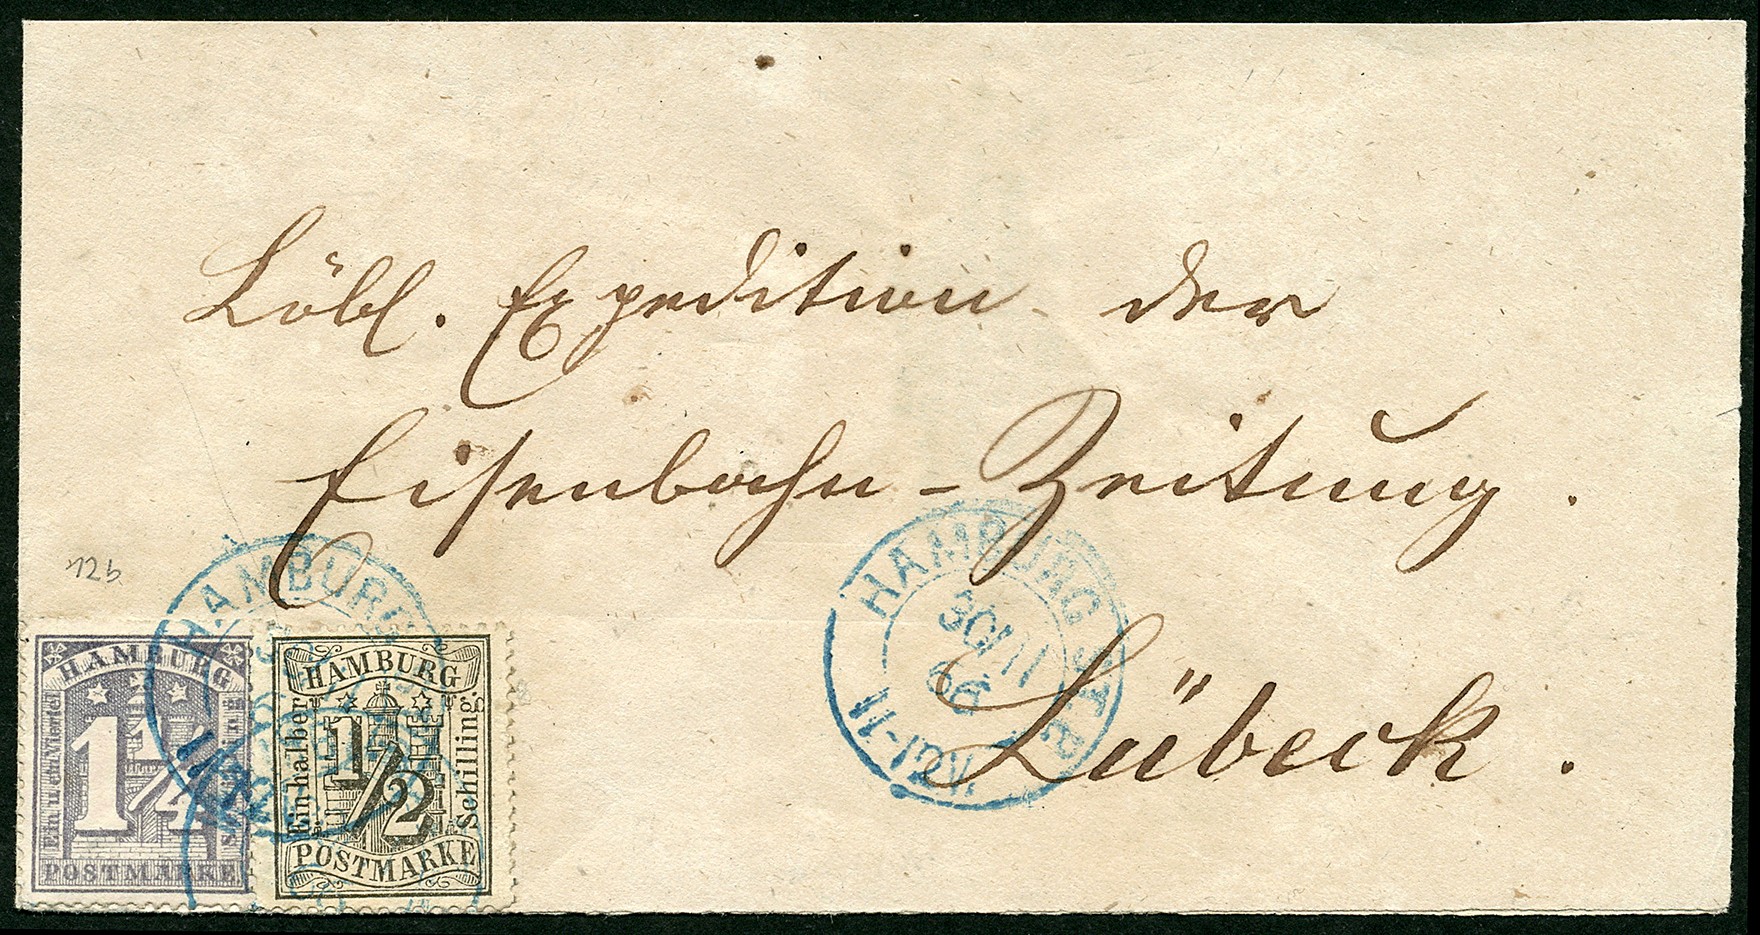 Löbl. Expedition der
Eisenbahn-Zeitung.
Lübeck.
12b
HAMBURG
HAMBURG
Ein u. ein Viertel
1 1/4
POSTMARKE
HAMBURG
Ein halber
1/2
Schilling.
POSTMARKE
HAMBURG
30
66